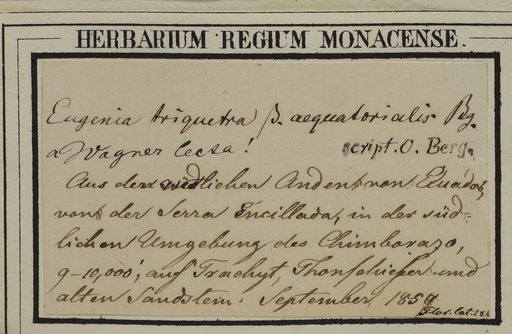 HERBARIUM REGIUM MONACENSE.
Eugenia triquetra β. aequatorialis Bg.
a Wagner lecta! script. O. Berg.
Aus den südlichen Anden von Ecuador,
von der Serra Encillada, in der süd-
lichen Umgebung des Chimborazo,
9-10,000', auf Trachyt, Thonschiefer und
alten Sandstein. September 1859